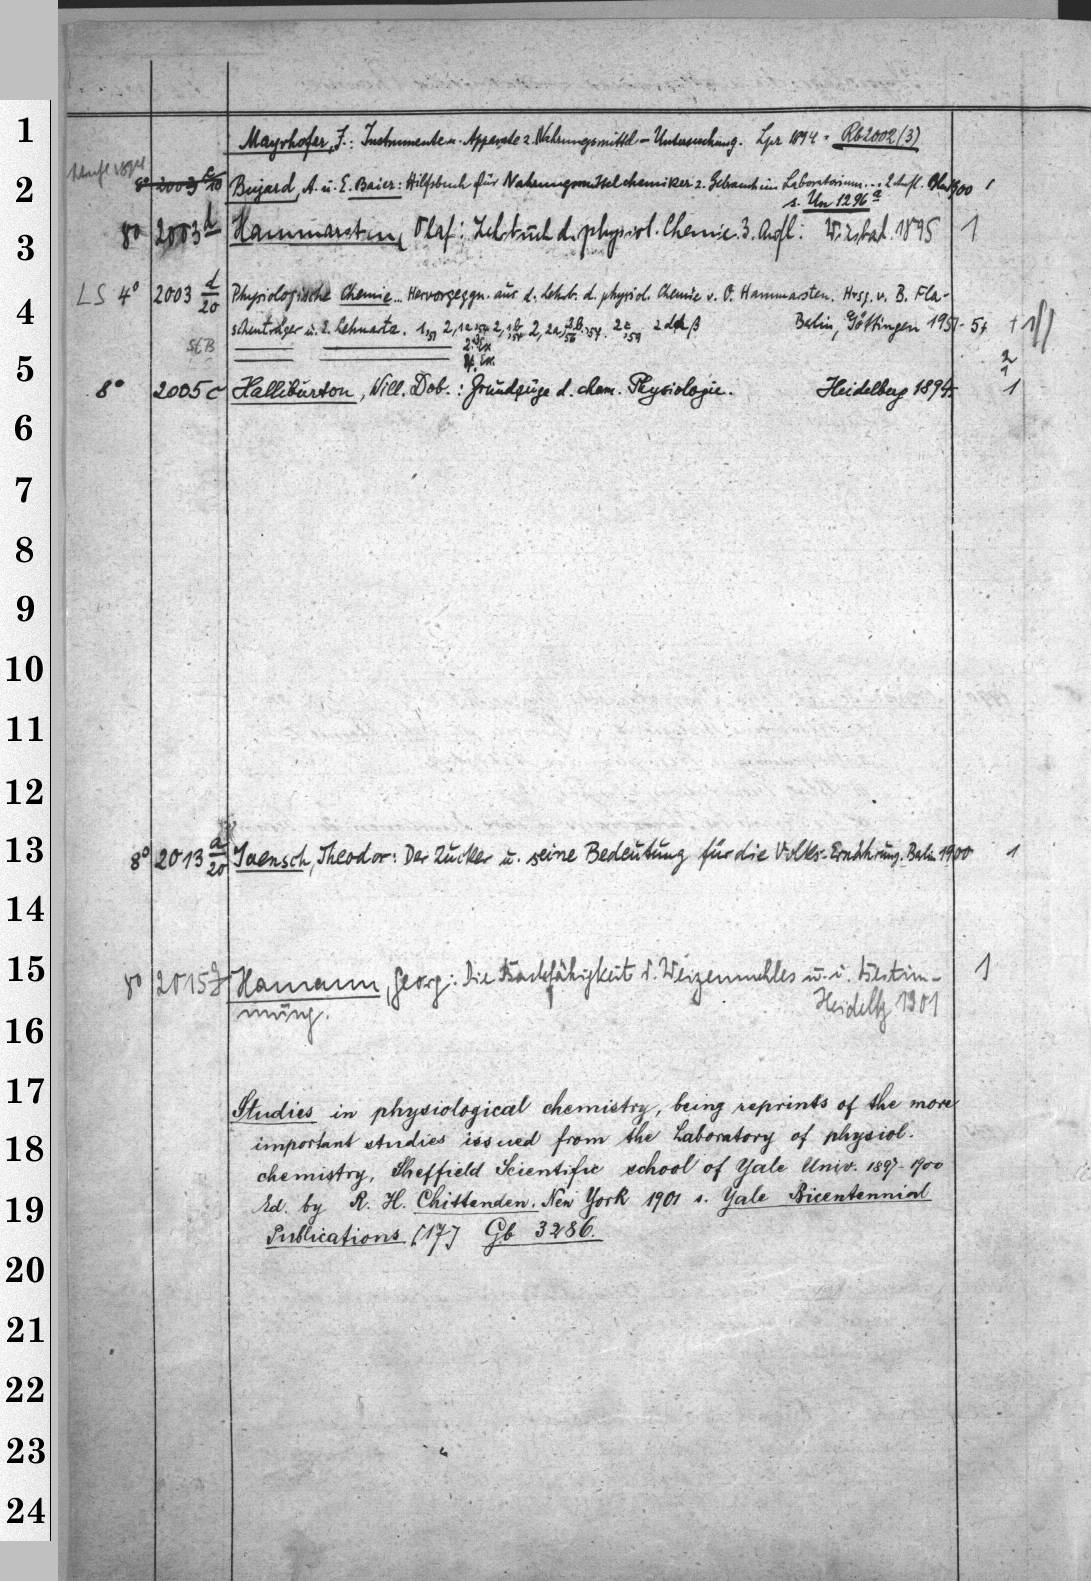 1 Mayrhofer, J.: Instrumente u. Apparate z. Nahrungsmittel-Untersuchung. Lpz 1894 = Rb2002(3)
2 8° 2003 c/10 Bujard, A. u. E. Baier: Hilfsbuch für Nahrungsmittelchemiker z. Gebrauch im Laboratorium... 2. Aufl. Bln 1900 1
s. Un 1296 a
3 8° 2003 d Hammarsten, Olaf: Lehrbuch d. physiol. Chemie. 3. Aufl: Wiesbad. 1895 1
4 LS 4° 2003 d/20 Physiologische Chemie... Hervorgeggn. aus d. Lehrb. d. physiol. Chemie v. O. Hammarsten. Hrsg. v. B. Fla-
schenträger u. E. Lehnartz. Berlin, Göttingen 1951-54
StB
5 2
1
8° 2005 c Halliburton, Will. Dob.: Grundzüge d. chem. Physiologie. Heidelberg 1894 1
6
7
8
9
10
11
12
13 8° 2013 a/20 Jaensch, Theodor: Der Zucker u. seine Bedeutung für die Volks-Ernährung. Berlin 1900 1
14
15 8° 2015 g Hamann, Georg: Die Backfähigkeit d. Weizenmehles u. i. Bestim- 1
mung. Heidelbg 1901
16
17 Studies in physiological chemistry, being reprints of the more
18 important studies issued from the Laboratory of physiol.
chemistry, Sheffield Scientific school of Yale Univ. 1897-1900
19 Ed. by R. H. Chittenden. New York 1901 s. Yale Bicentennial
Publications [17] Gb 3286.
20
21
22
23
24